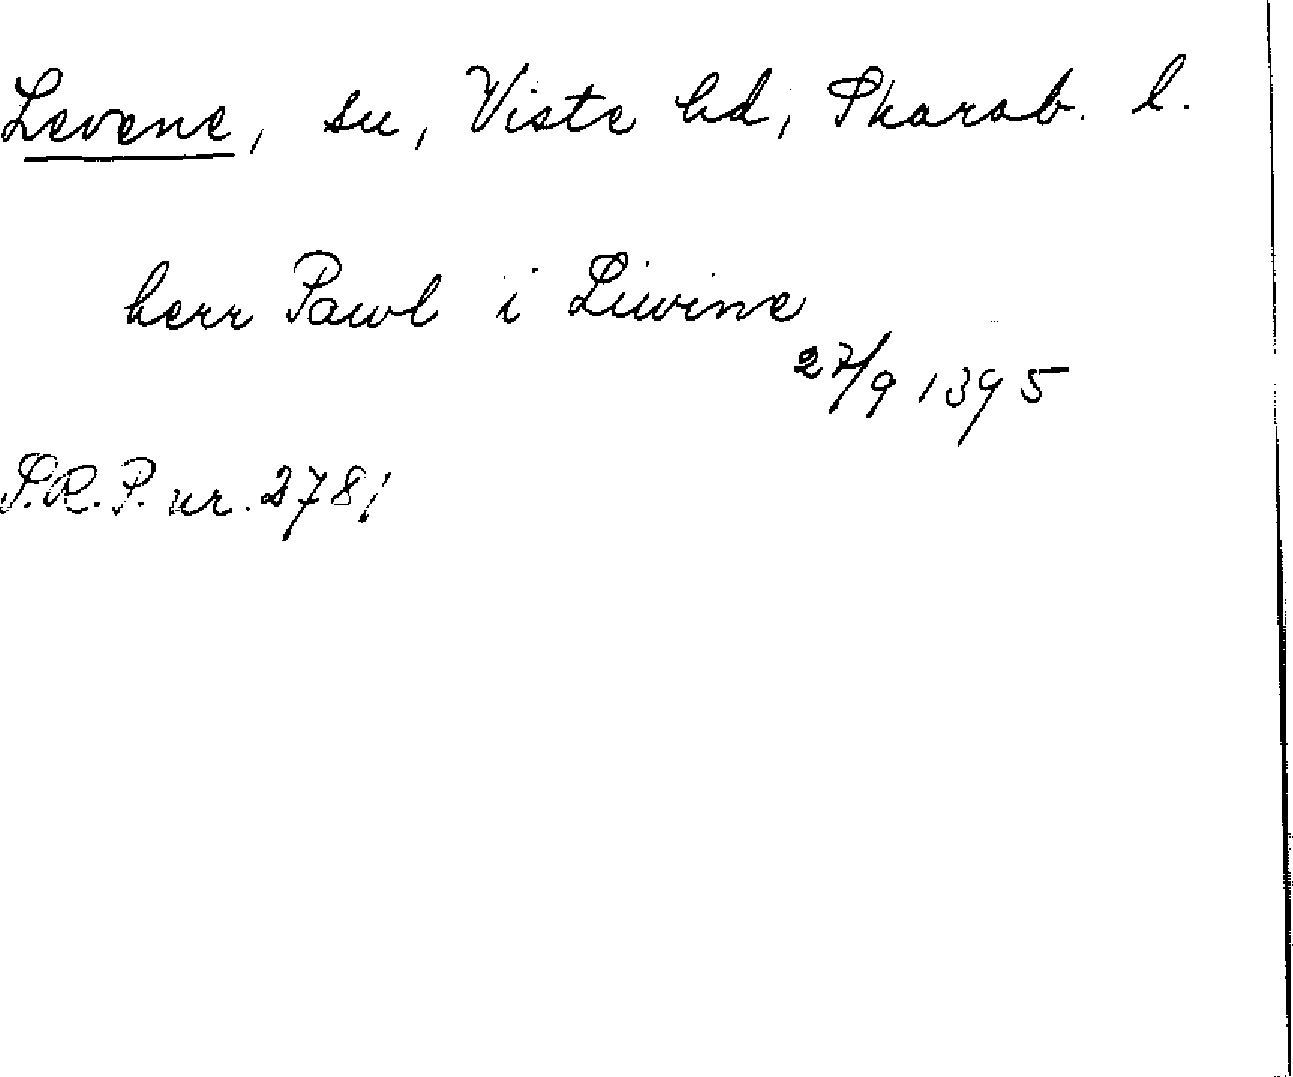 Levene, su, Viste hd, Skarab. l.
herr Pawl i Liwine
27/9 1395
S.R.P. nr. 2781